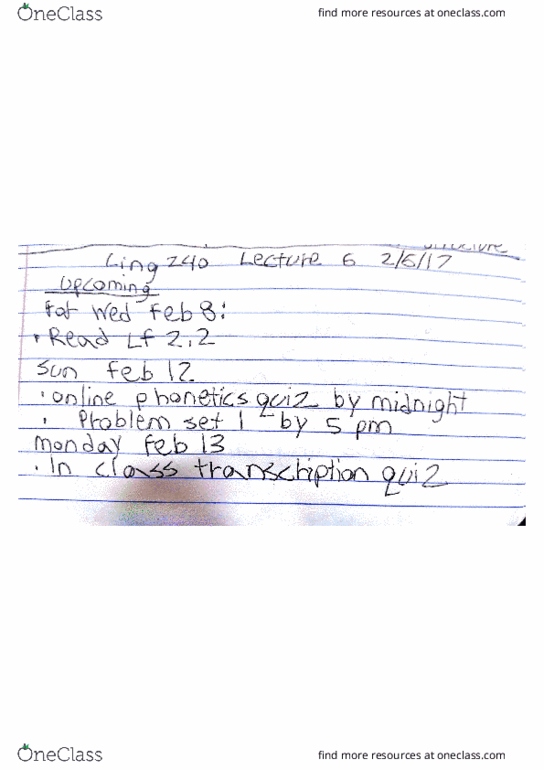 OneClass find more resources at oneclass.com
structure
Ling 240 Lecture 6 2/6/17
Upcoming
For Wed Feb 8:
• Read LF 2.2
Sun Feb 12
• online phonetics quiz by midnight
• Problem set 1 by 5 pm
monday Feb 13
• In class transcription quiz
OneClass find more resources at oneclass.com